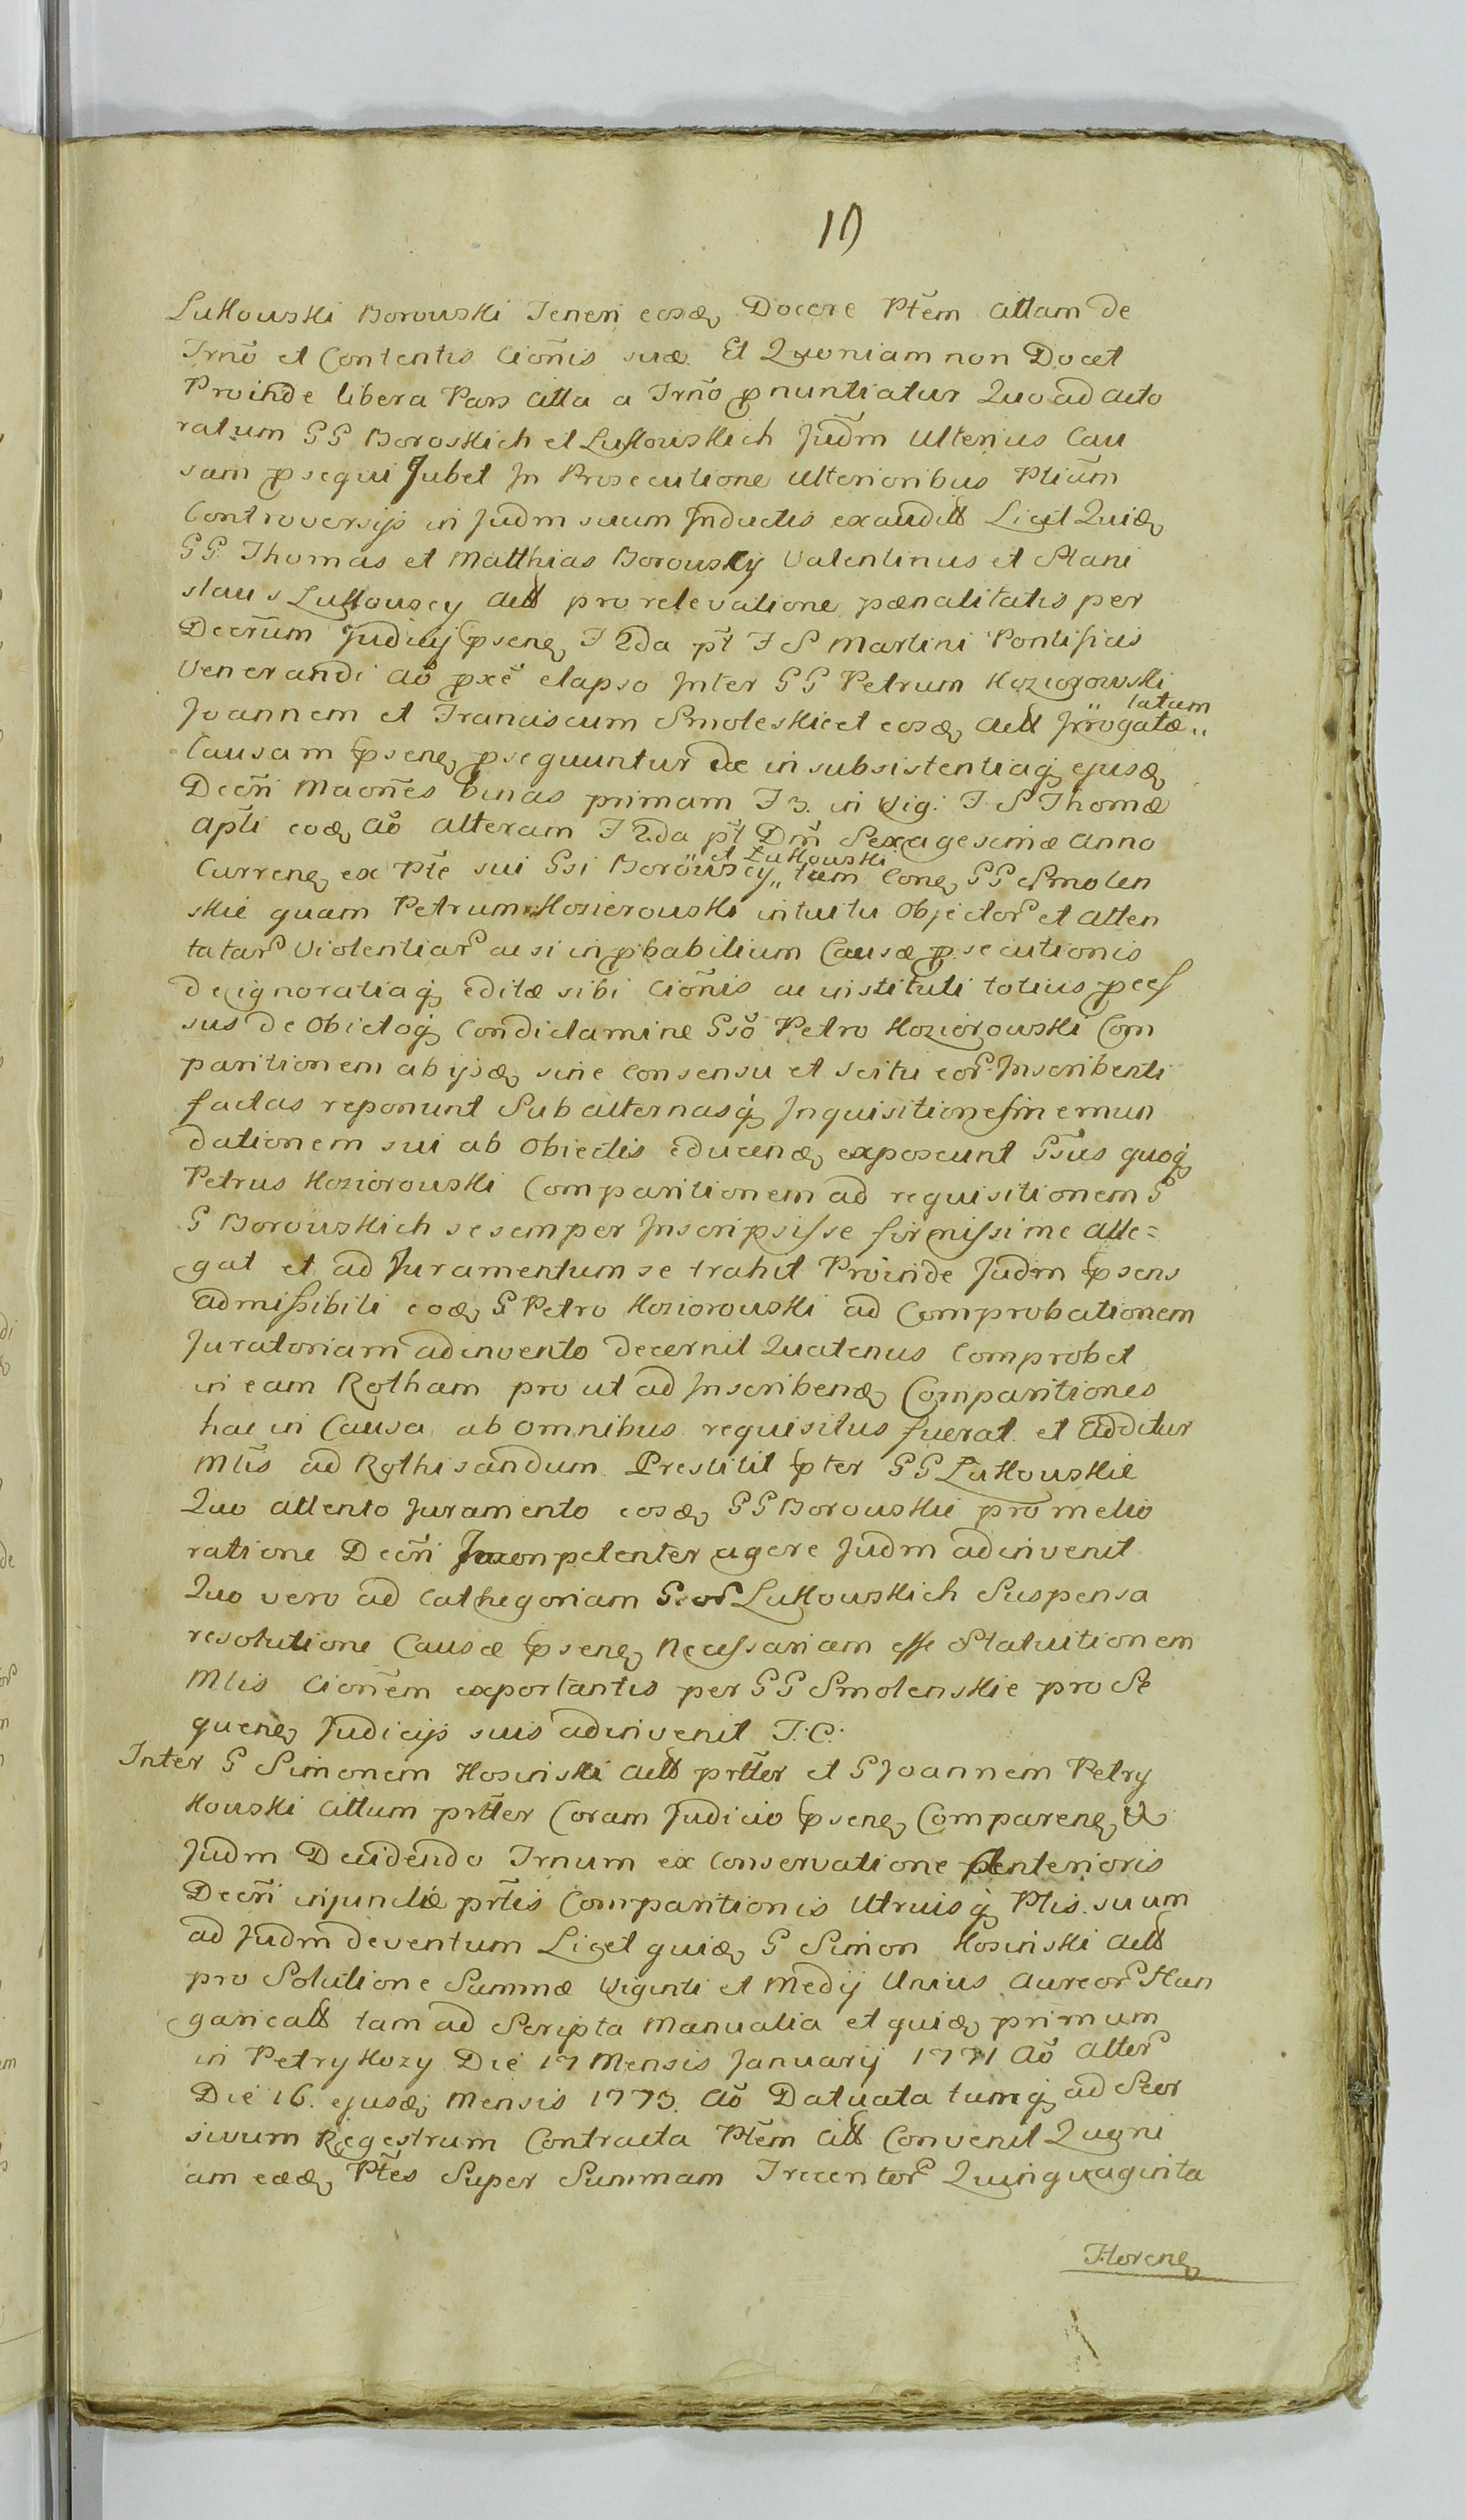 Lukowski Borowski Teneri eosdę Docere Ptem Cittam de
Trno et Contentis Cionis suæ Et Quoniam non Docet
Proinde libera Pars Citta a Trno pnuntiatur Quo ad acto
ratum GG Boroskich et Lukowskich Judm Ulterius Cau
sam psequi Jubet In Prosecutione Ulterioribus Ptium
Controversijs in Judm suum Inductis exauditt Licet Quidę
GG Thomas et Matthias Borowscy Valentinus et Stani
slaus Lukowscy Actt pro relevatione pænalitatis per
Decrum Judicij psenę F 2da pt F S Martini Pontificis
Venerandi Ao pxe elapso Inter GG Petrum Koziorowski
Joannem et Franciscum Smoleskie et eosdę Actt Irrogatæ
latam
Causam psenę psequuntur de in subsistentiaq ejusdę
Decri Maones binas primam F 3. in Vig. F. S Thomæ
Apli eodę Ao Alteram F 2da pt Dm Sexagesimæ Anno
Currenę ex Pte sui Gsi Borowscy tam Conę GG Smolen
et Lukowski
skie quam Petrum Kosierowski intuitu Objector et Atten
tatar Violentiar ac si inpbabilium Causæ psecutionis
de ignoratiaq editæ sibi Cionis ac instituti totius pces
sus de Obictoq Condictamine Gso Petro Koziorowski Com
paritionem ab ijsdę sine Consensu et scitu eor Inscribenti
factas reponunt Subalternasq Inquisitiones in emun
dationem sui ab Obiectis educendę exposcunt Gsus quoq
Petrus Koziorowski Comparitionem ad requisitionem G
G Borowskich se semper Inscripsisse firmissime Alle=
gat et ad Juramentum se trahit Proinde Judm psens
Admissibili eodę G Petro Koziorowski ad Comprobationem
Juratoriam adinvento decernit Quatenus Comprobet
in eam Rotham pro ut ad Inscribendę Comparitiones
hac in Causa ab omnibus requisitus fuerat et Additur
Mtis ad Rothisandum Prestitit pter GG Lukowskie
Quo attento Juramento eosdę GG Borowskie pro melio
ratione Decri Inconpetenter agere Judm adinvenit
Quo vero ad Cathegoriam Gsor Lukowskich Suspensa
resolutione Causæ psenę Necessariam esse Statuitionem
Mtis Cionem exportantis per GG Smolenskie pro Se
quenę Judicijs suis adinvenit T. C.
Inter G Simonem Kosinski Actt prtter et G Joannem Petry
kowski Cittum prtter Coram Judicio psenę Comparenę &
Judm Decidendo Trnum ex Conservatione Anterioris
Decri injunctæ prtis Comparitionis Utruisq Ptis suum
ad Judm deventum Licet quidę G Simon Kosinski Actt
pro Solutione Summæ Viginti et Medij Unius Aureor Hun
garicatt tam ad Scripta Manualia et quidę primum
in Petrykozy Die 17 Mensis Januarij 1771 Ao Alter
Die 16. ejusdę Mensis 1773. Ao Datuata tumq ad Seor
sivum Regestrum Contracta Ptem Citt Convenit Quoni
am eædę Ptes Super Summam Trecentor Quinquaginta
Florenę